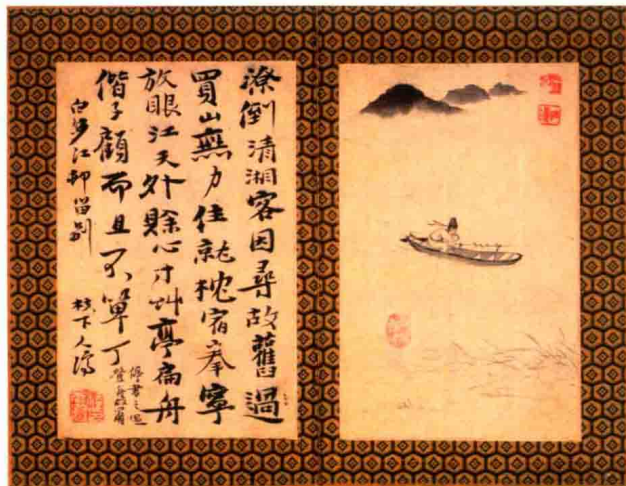 潦倒清湘客因尋故舊過
買山無力住就枕宿奉寧
放眼江天外賒心寸草亭扁舟
偕子顧而且不單丁
白
江
留別
下人濟